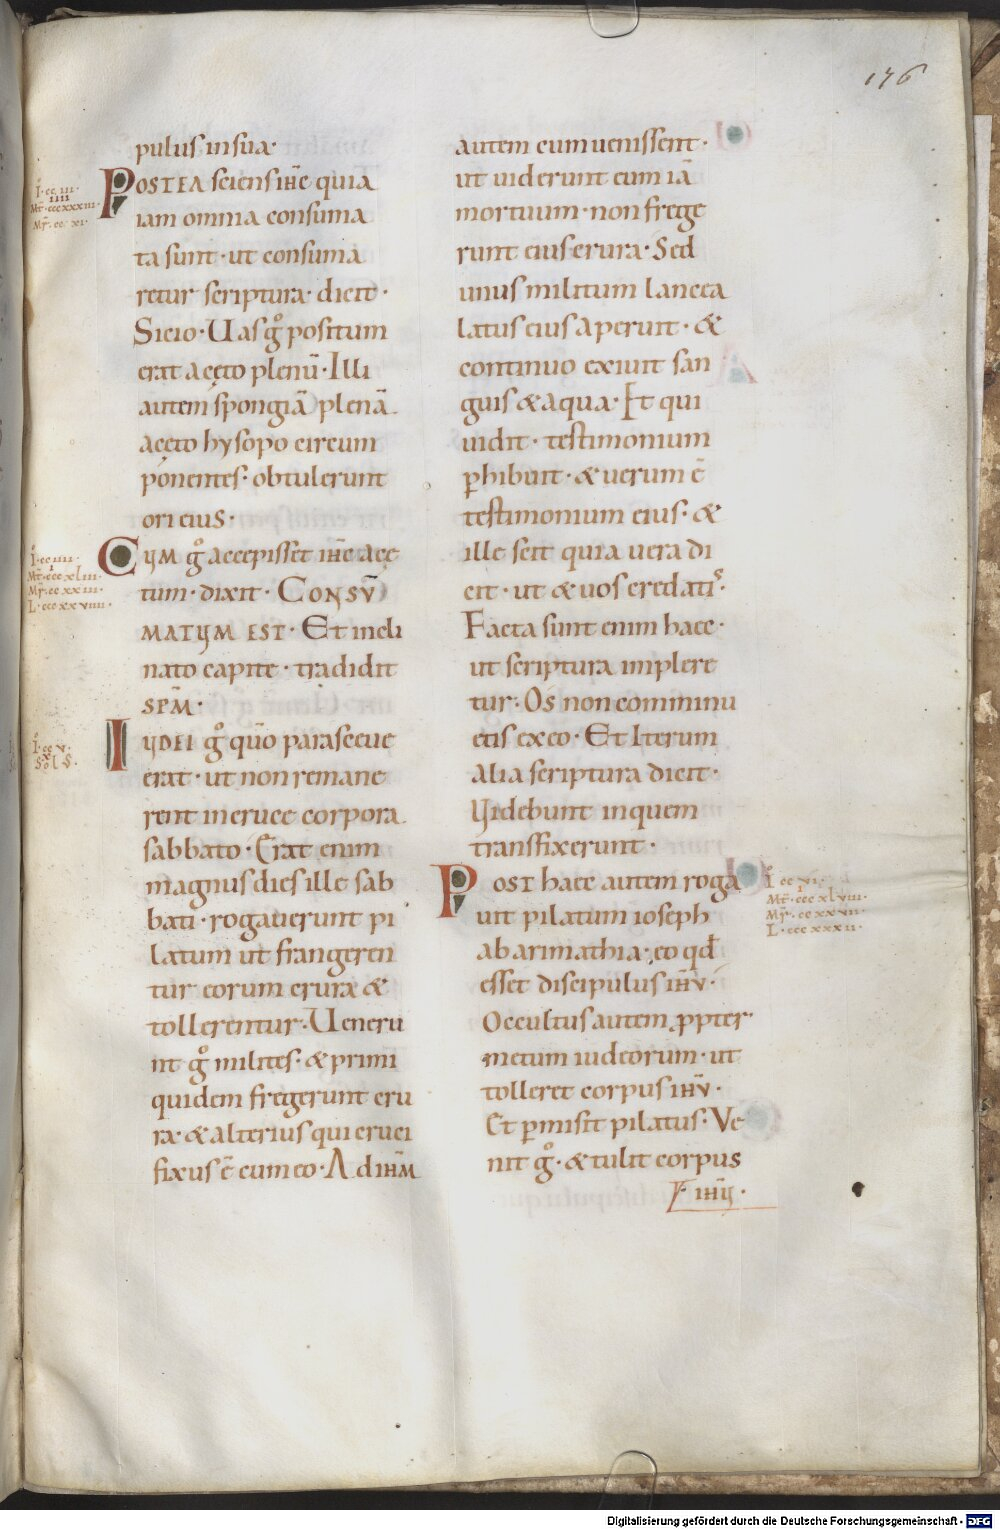 176
pulus in sua·
POSTEA sciens ih̄c quia
iam omnia consuma
ta sunt· ut consuma
retur scriptura· dicit·
Sicio· Uas gͦ positum
erat aceto plenū· Illi
autem spongiā plenā
aceto hysopo circum
ponentes· obtulerunt
ori eius·
CUM gͦ accepisset ih̄c ace
tum· dixit· CONSŪ
MATUM EST· Et incli
nato capite· tradidit
SPM̄·
IUDEI gͦ quō parasceue
erat· ut non remane
rent in cruce corpora
sabbato· Erat enim
magnus dies ille sab
bati· rogauerunt pi
latum ut frangeren
tur eorum crura &
tollerentur· Ueneru
nt gͦ milites· & primi
quidem fregerunt cru
ra· & alterius qui cruci
fixus ē cum eo· Ad ih̄m
autem cum uenissent·
ut uiderunt eum iā
mortuum· non frege
runt eius crura· Sed
unus militum lancea
latus eius aperuit· &
continuo exiuit san
guis & aqua· Et qui
uidit· testimonium
ꝑhibuit· & uerum ē
testimonium eius· &
ille scit quia uera di
cit· ut & uos credatis·
Facta sunt enim haec·
ut scriptura implere
tur· Os non comminu
etis ex eo· Et Iterum
alia scriptura dicit·
Uidebunt in quem
transfixerunt·
POST haec autem roga
uit pilatum ioseph
ab arimathia· eo qd̄
esset discipulus ih̄u·
Occultus autem ꝓpter
metum iudeorum· ut
tolleret corpus ih̄u·
Et ꝑmisit pilatus· Ve
nit gͦ· & tulit corpus
ih̄u·
I· cc iii·
iiii
Mt̄· cccxxxiii·
Mr̄· cc xi·
I· cc iiii·
Mt̄· ccc xliii·
Mr̄· cc xxiii·
L· ccc xxviiii·
I· cc v·
Sol S·
I· cc vi·
Mt̄· ccc xlviii·
Mr̄· cc xxvii·
L· ccc xxxii·
Digitalisierung gefördert durch die Deutsche Forschungsgemeinschaft - DFG